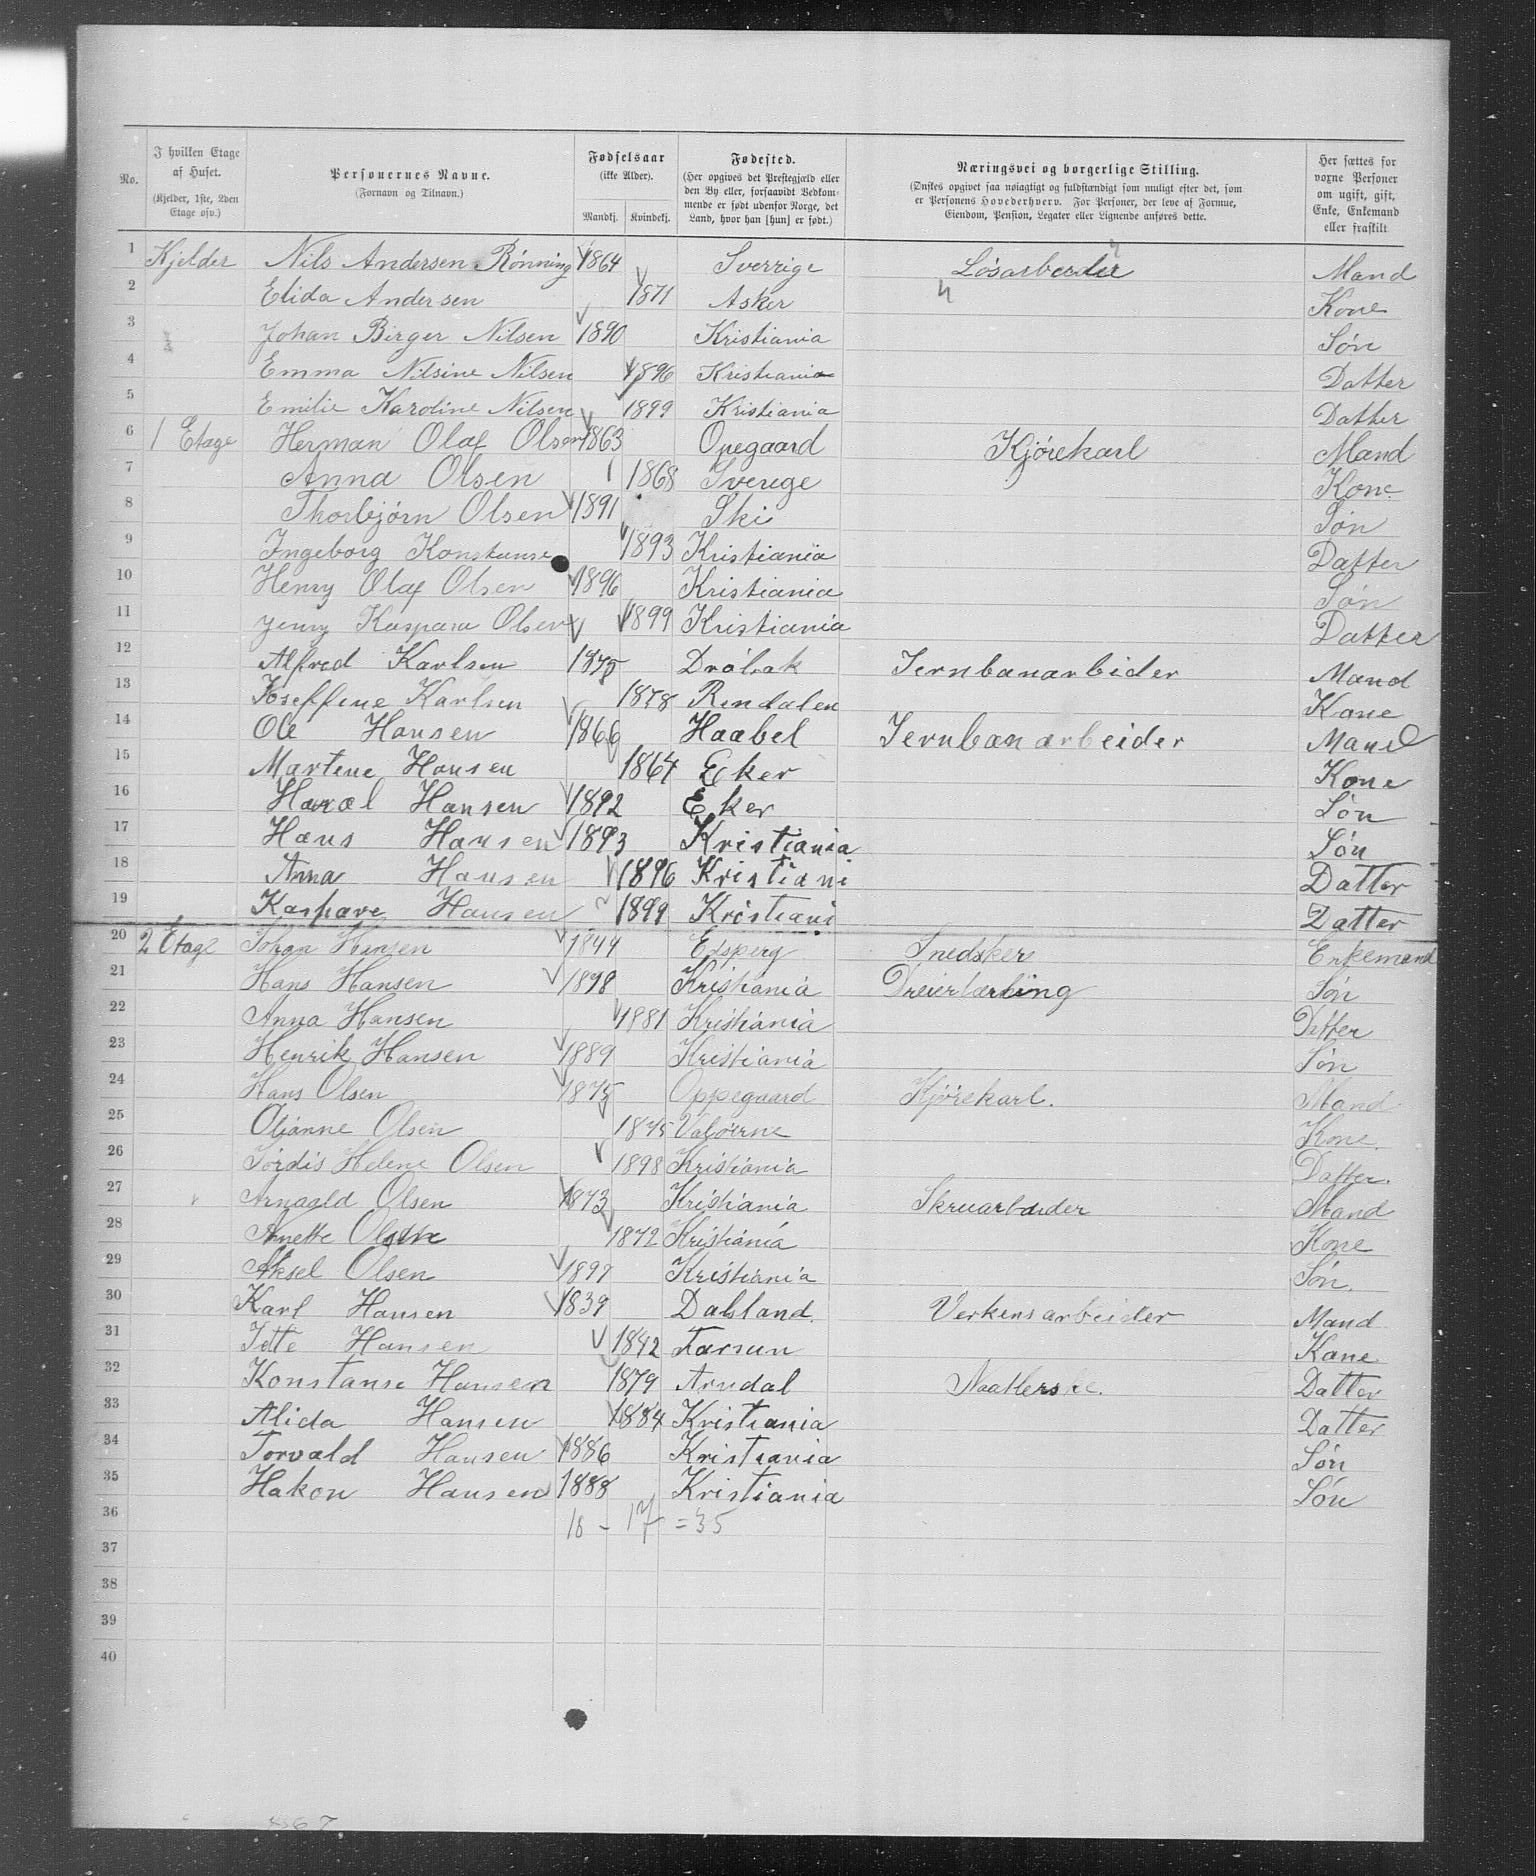 No.
I hvilken Etage af Huset. (Kjelder, 1ste, 2den Etage osv.)
Personernes Navne. (Fornavn og Tilnavn.)
Fødselsaar (ikke Alder).
Mandkj. Kvindekj.
Fødested. (Her opgives det Prestegjæld eller den By eller, forsaavidt Vedkommende er født udenfor Norge, det Land, hvor han [hun] er født.)
Næringsvei og borgerlige Stilling. (Ønskes opgivet saa nøiagtigt og fuldstændigt som muligt efter det, som er Personens Hovederhverv. For Personer, der leve af Formue, Eiendom, Pension, Legater eller Lignende anføres dette.
Her sættes for voxne Personer om ugift, gift, Enke, Enkemand eller fraskilt
1 Kjelder Nils Andersen Rönning 1864 Sverrige Lösarbeider Mand
2 Elida Andersen 1871 Asker Kone
3 Johan Birger Nilsen 1890 Kristiania Sön
4 Emma Nilsine Nilsen 1896 Kristiania Datter
5 Emilie Karoline Nilsen 1899 Kristiania Datter
6 1 Etage Herman Olaf Olsen 1863 Opegaard Kjörekarl Mand
7 Anna Olsen 1868 Sverige Kone
8 Thorbjörn Olsen 1891 Ski Sön
9 Ingeborg Konstanse 1893 Kristiania Datter
10 Henry Olaf Olsen 1896 Kristiania Sön
11 Jenny Kaspara Olsen 1899 Kristiania Datter
12 Alfred Karlsen 1875 Dröbak Jernbanarbider Mand
13 Joseffine Karlsen 1878 Rendalen Kone
14 Ole Hansen 1866 Haabel Jernbanarbeider Mand
15 Martene Hansen 1864 Eker Kone
16 Haral Hansen 1892 Eker Sön
17 Hans Hansen 1893 Kristiania Sön
18 Anna Hansen 1896 Kristiani Datter
19 Kaspare Hansen 1899 Kristiani Datter
20 2 Etage Johan Hansen 1844 Edsperg Snedsker Enkemand
21 Hans Hansen 1878 Kristiania Dreierlærling Sön
22 Anna Hansen 1881 Kristiania Datter
23 Henrik Hansen 1889 Kristiania Sön
24 Hans Olsen 1875 Oppegaard Kjörekarl. Mand
25 Olianne Olsen 1875 Valöerne Kone
26 Jördis Helene Olsen 1898 Kristiania Datter.
27 Arnaald Olsen 1873 Kristiania Skruarbæider Mand
28 Anette Olsen 1872 Kristiania Kone
29 Aksel Olsen 1897 Kristiania Sön.
30 Karl Hansen 1839 Dalsland. Verkensarbeider Mand
31 Jette Hansen 1842 Farsun Kone
32 Konstanse Hansen 1879 Arndal Naatlerske. Datter
33 Alida Hansen 1884 Kristiania Datter
34 Torvald Hansen 1886 Kristiania Sön
35 Hakon Hansen 1888 Kristiania Sön
36 18 – 17 = 35
37
38
39
40